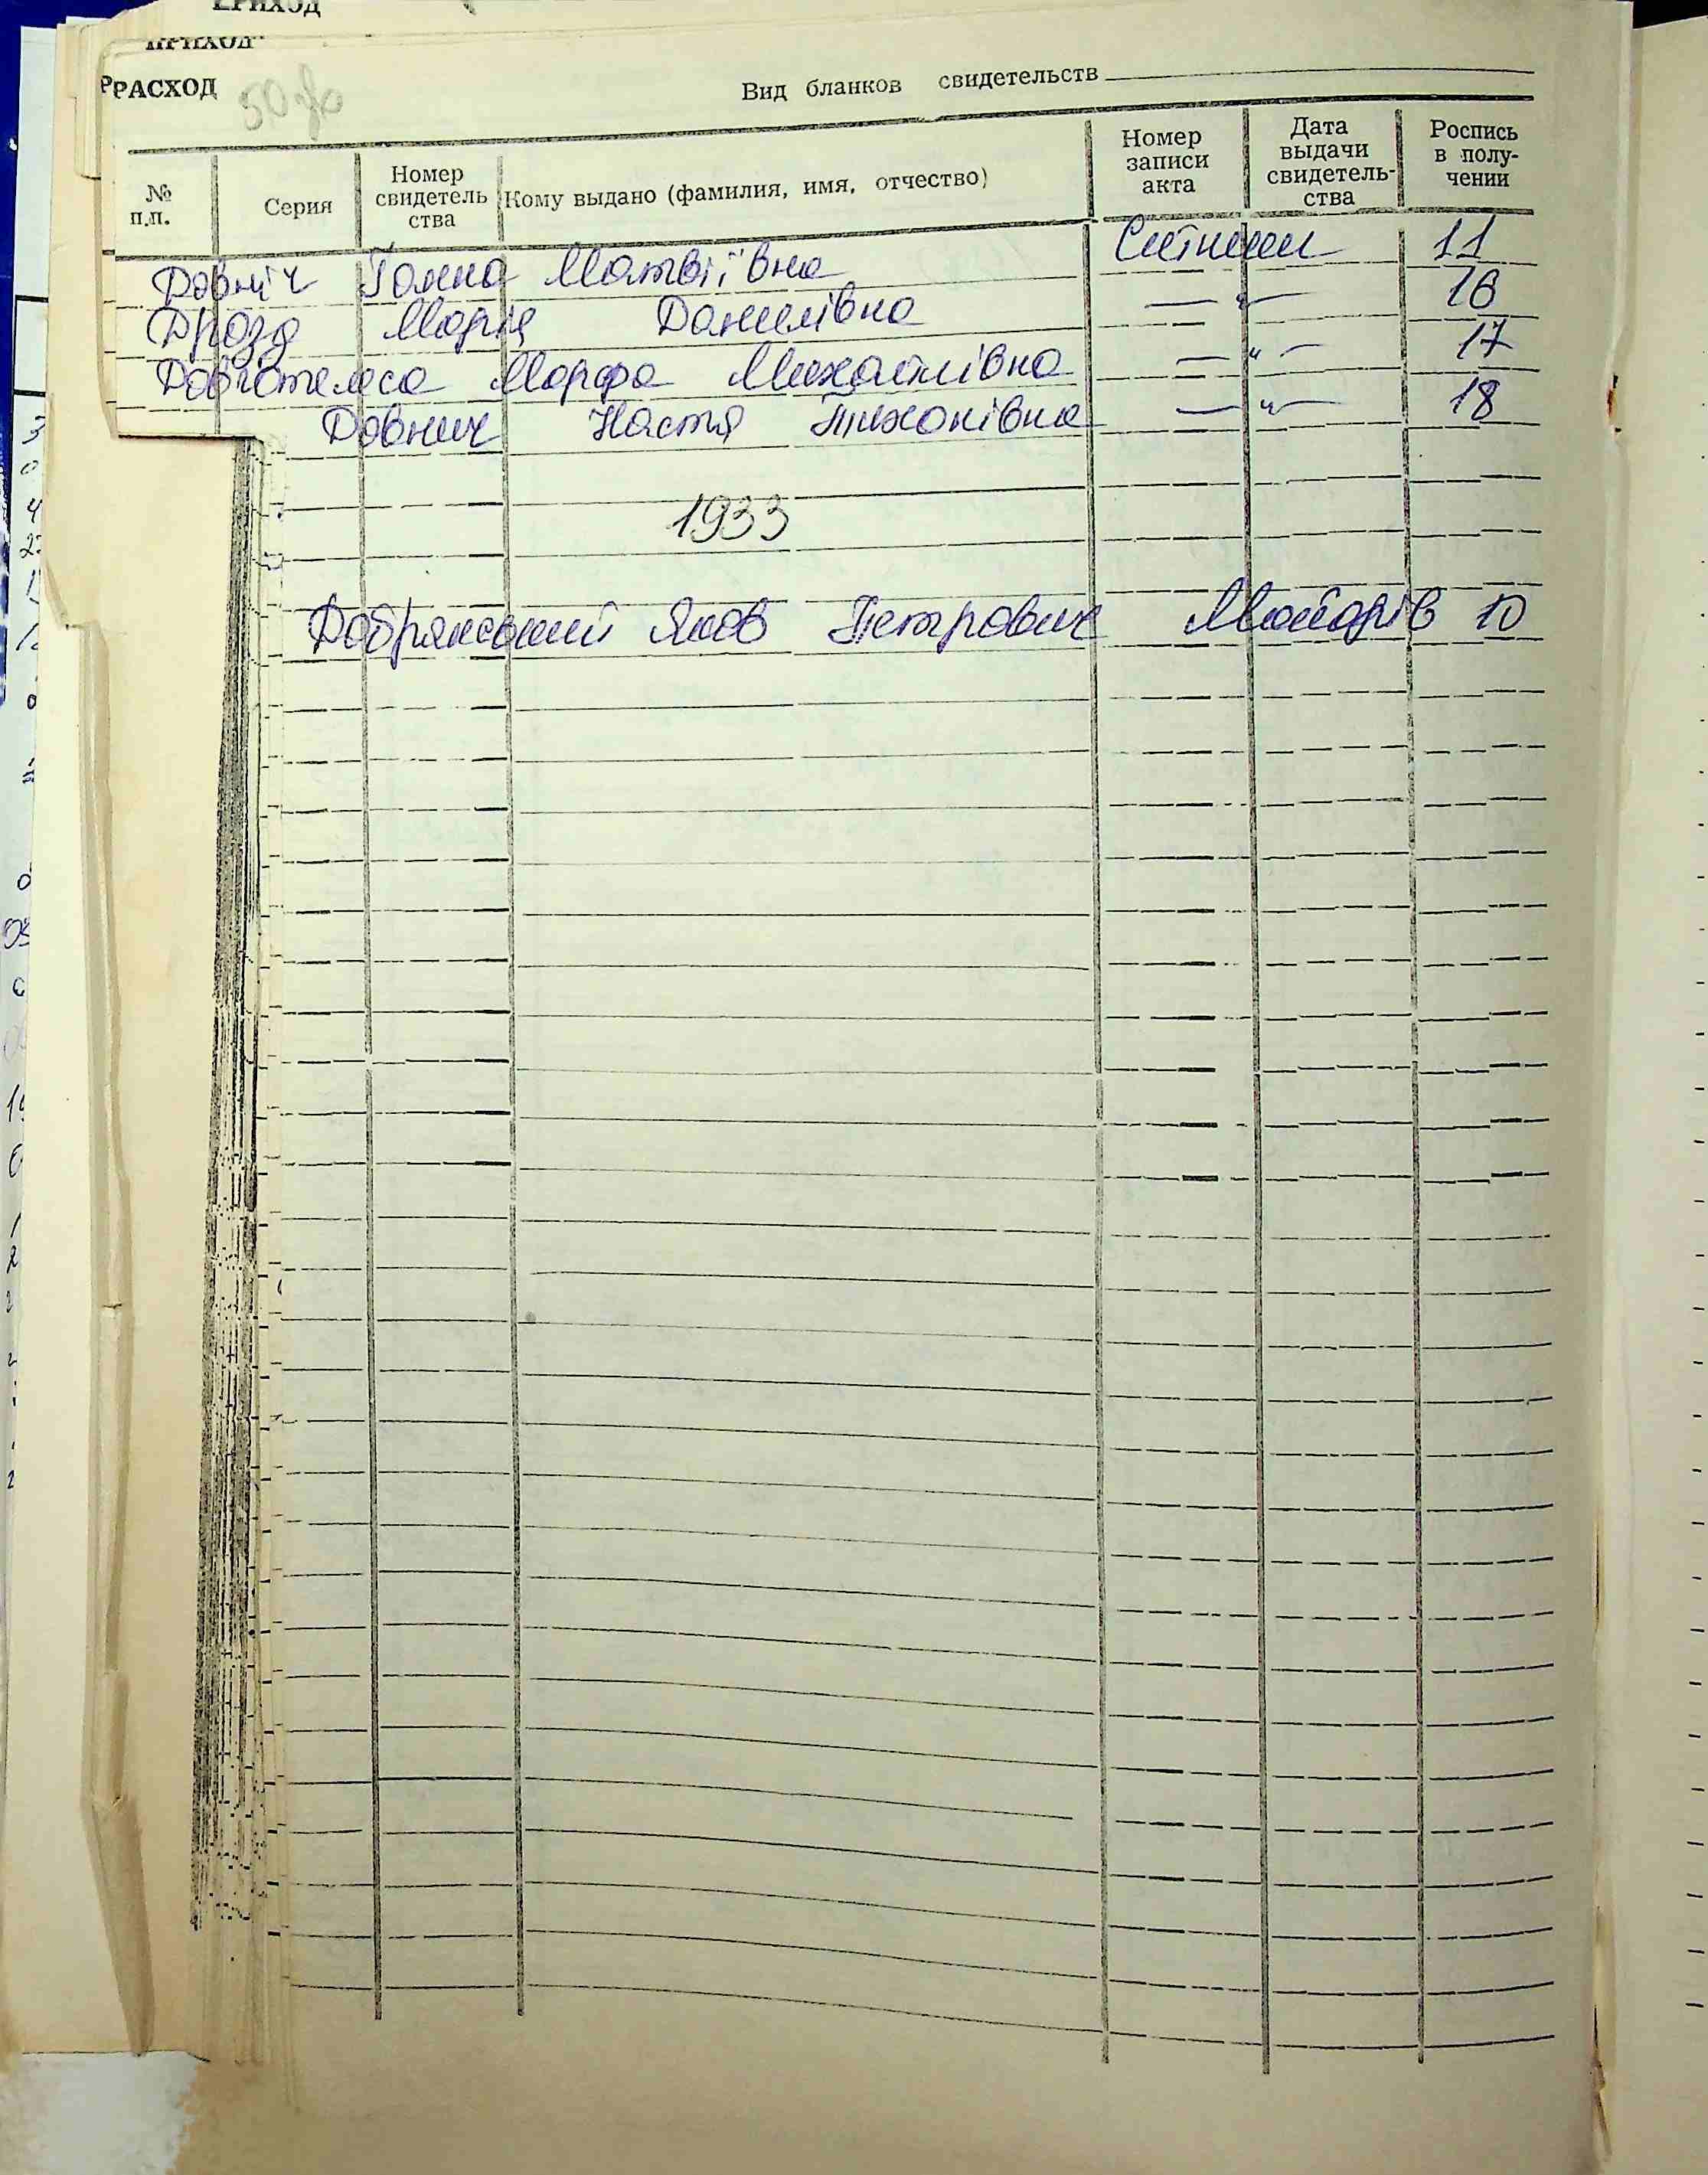 ПРИХОД
РАСХОД
50
Вид бланков свидетельств
№ п.п.
Серия
Номер свидетель ства
Кому выдано (фамилия, имя, отчество)
Номер записи акта
Дата выдачи свидетель- ства
Роспись в полу- чении
Довніч Ганна Матвіївна 11
Дрозд Марія Данилівна — " — 16
Довготелеса Марфа Михайлівна — " — 17
Довнич Настя Тихонівна — " — 18
1933
Добрянський Яков Петрович Майдарів 10